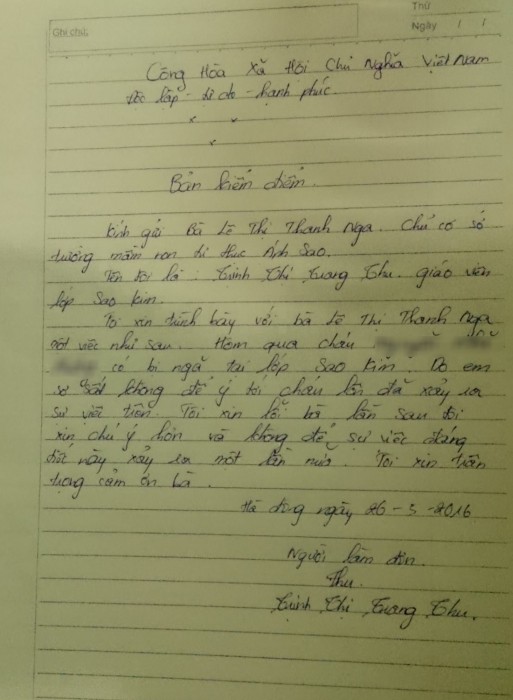 Thứ
Ghi chú:
Ngày / /
Cộng Hòa Xã Hội Chủ Nghĩa Việt Nam
Độc lập - tự do - hạnh phúc.
Bản kiểm điểm.
Kính gửi Bà Lê Thị Thanh Nga. Chủ cơ sở
trường mầm non tư thục Ánh Sao.
Tên tôi là : Trịnh Thị Trang Thu. giáo viên
lớp Sao Kim.
Tôi xin trình bày với bà Lê Thị Thanh Nga
một việc như sau. Hôm qua cháu
có bị ngã tại lớp Sao Kim. Do em
sơ suất không để ý tới cháu lên đã xảy ra
sự việc trên. Tôi xin lỗi bà lần sau tôi
xin chú ý hơn và không để sự việc đáng
tiếc này xảy ra một lần nữa. Tôi xin trân
trọng cảm ơn bà.
Hà đông ngày 26-3-2016
Người làm đơn.
Thu.
Trịnh Thị Trang Thu.